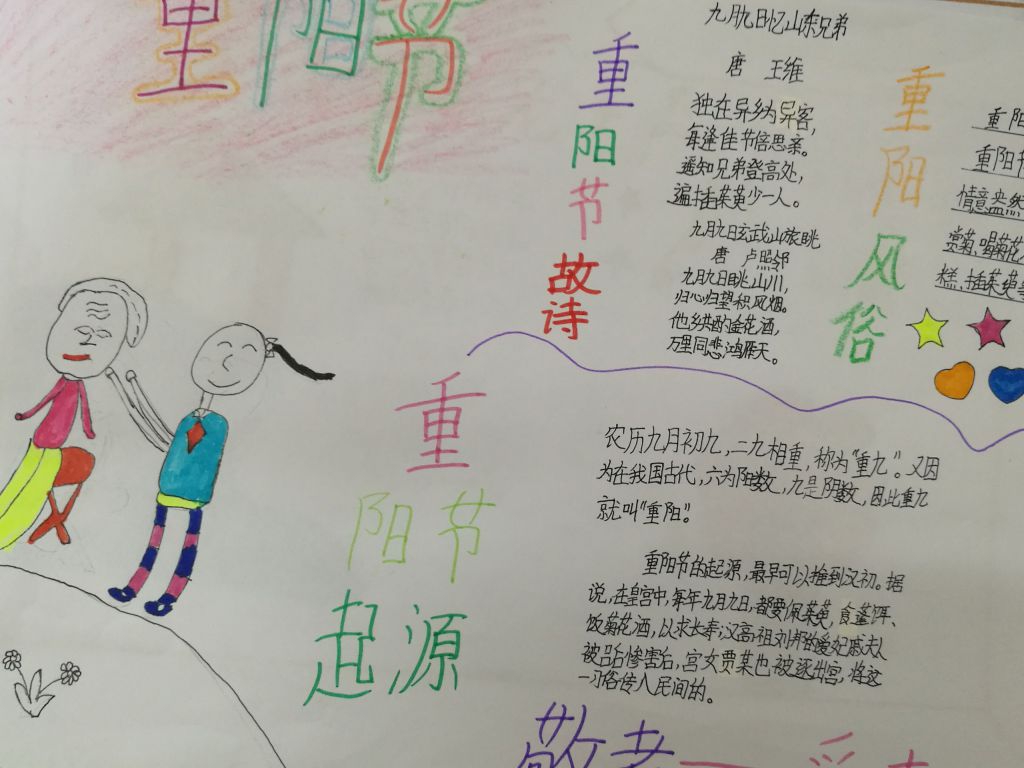 重阳节
重阳节故诗
九月九日忆山东兄弟
唐 王维
独在异乡为异客，
每逢佳节倍思亲。
遥知兄弟登高处，
遍插茱萸少一人。
九月九日玄武山旅眺
唐 卢照邻
九月九日眺山川，
归心归望积风烟。
他乡共酌金花酒，
万里同悲鸿雁天。
重阳风俗
重阳
重阳节
情意盎然
赏菊、喝菊花
糕、插茱萸等
重阳节起源
农历九月初九，二九相重，称为“重九”。又因
为在我国古代，六为阳数，九是阴数，因此重九
就叫“重阳”。
重阳节的起源，最早可以推到汉初。据
说，在皇宫中，每年九月九日，都要佩茱萸，食蓬饵、
饭菊花酒，以求长寿；汉高祖刘邦的爱妃戚夫人
被吕后惨害后，宫女贾某也被逐出宫，将这
一习俗传入民间的。
敬老